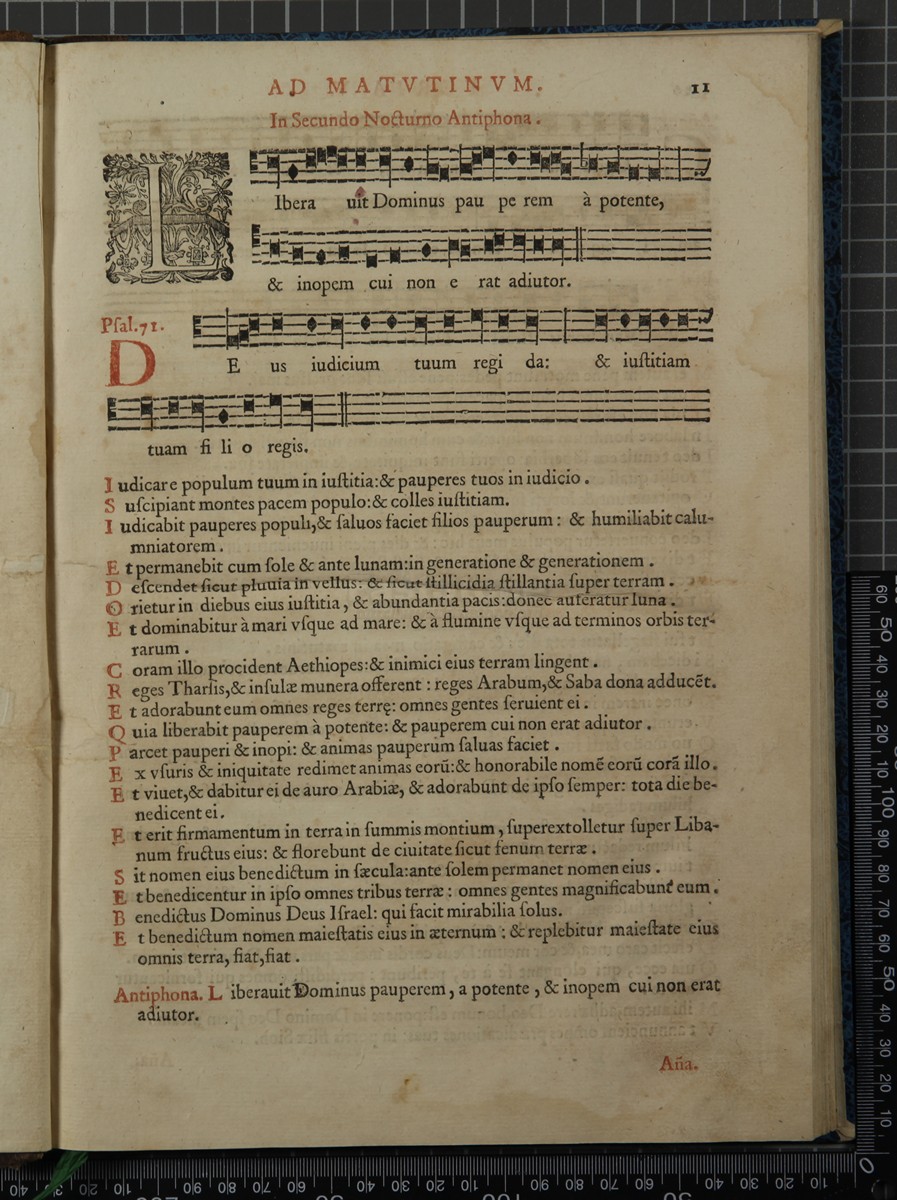 AD MATVTINVM. 11
In Secundo Nocturno Antiphona.
LIbera uit Dominus pau pe rem à potente,
& inopem cui non e rat adiutor.
Pſal.71.
DE us iudicium tuum regi da: & iuſtitiam
tuam fi li o regis.
Iudicare populum tuum in iuſtitia:& pauperes tuos in iudicio.
Suſcipiant montes pacem populo:& colles iuſtitiam.
Iudicabit pauperes populi,& ſaluos faciet filios pauperum: & humiliabit calu-
mniatorem.
Et permanebit cum ſole & ante lunam:in generatione & generationem.
Deſcendet ſicut pluuia in vellus: & ſicut ſtillicidia ſtillantia ſuper terram.
Orietur in diebus eius iuſtitia, & abundantia pacis:donec auferatur luna.
Et dominabitur à mari vſque ad mare: & à flumine vſque ad terminos orbis ter-
rarum.
Coram illo procident Aethiopes:& inimici eius terram lingent.
Reges Tharſis,& inſulæ munera offerent: reges Arabum,& Saba dona adducẽt.
Et adorabunt eum omnes reges terrę: omnes gentes ſeruient ei.
Quia liberabit pauperem à potente: & pauperem cui non erat adiutor.
Parcet pauperi & inopi: & animas pauperum ſaluas faciet.
Ex vſuris & iniquitate redimet animas eorũ:& honorabile nomẽ eorũ corã illo.
Et viuet,& dabitur ei de auro Arabiæ, & adorabunt de ipſo ſemper: tota die be-
nedicent ei.
Et erit firmamentum in terra in ſummis montium, ſuperextolletur ſuper Liba-
num fructus eius: & florebunt de ciuitate ſicut fenum terræ.
Sit nomen eius benedictum in ſæcula:ante ſolem permanet nomen eius.
Et benedicentur in ipſo omnes tribus terræ: omnes gentes magnificabunt eum.
Benedictus Dominus Deus Iſrael: qui facit mirabilia ſolus.
Et benedictum nomen maieſtatis eius in æternum: & replebitur maieſtate eius
omnis terra, fiat,fiat.
Antiphona. Liberauit Dominus pauperem, a potente, & inopem cui non erat
adiutor.
Aña.